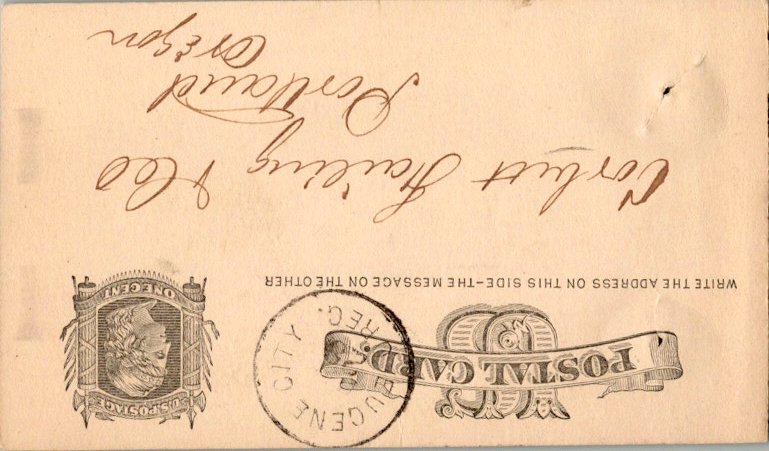 POSTAL CARD.
U.S. POSTAGE
ONE CENT
EUGENE CITY
OREG.
WRITE THE ADDRESS ON THIS SIDE-THE MESSAGE ON THE OTHER
Corbett Failing & Co
Portland
Oregon